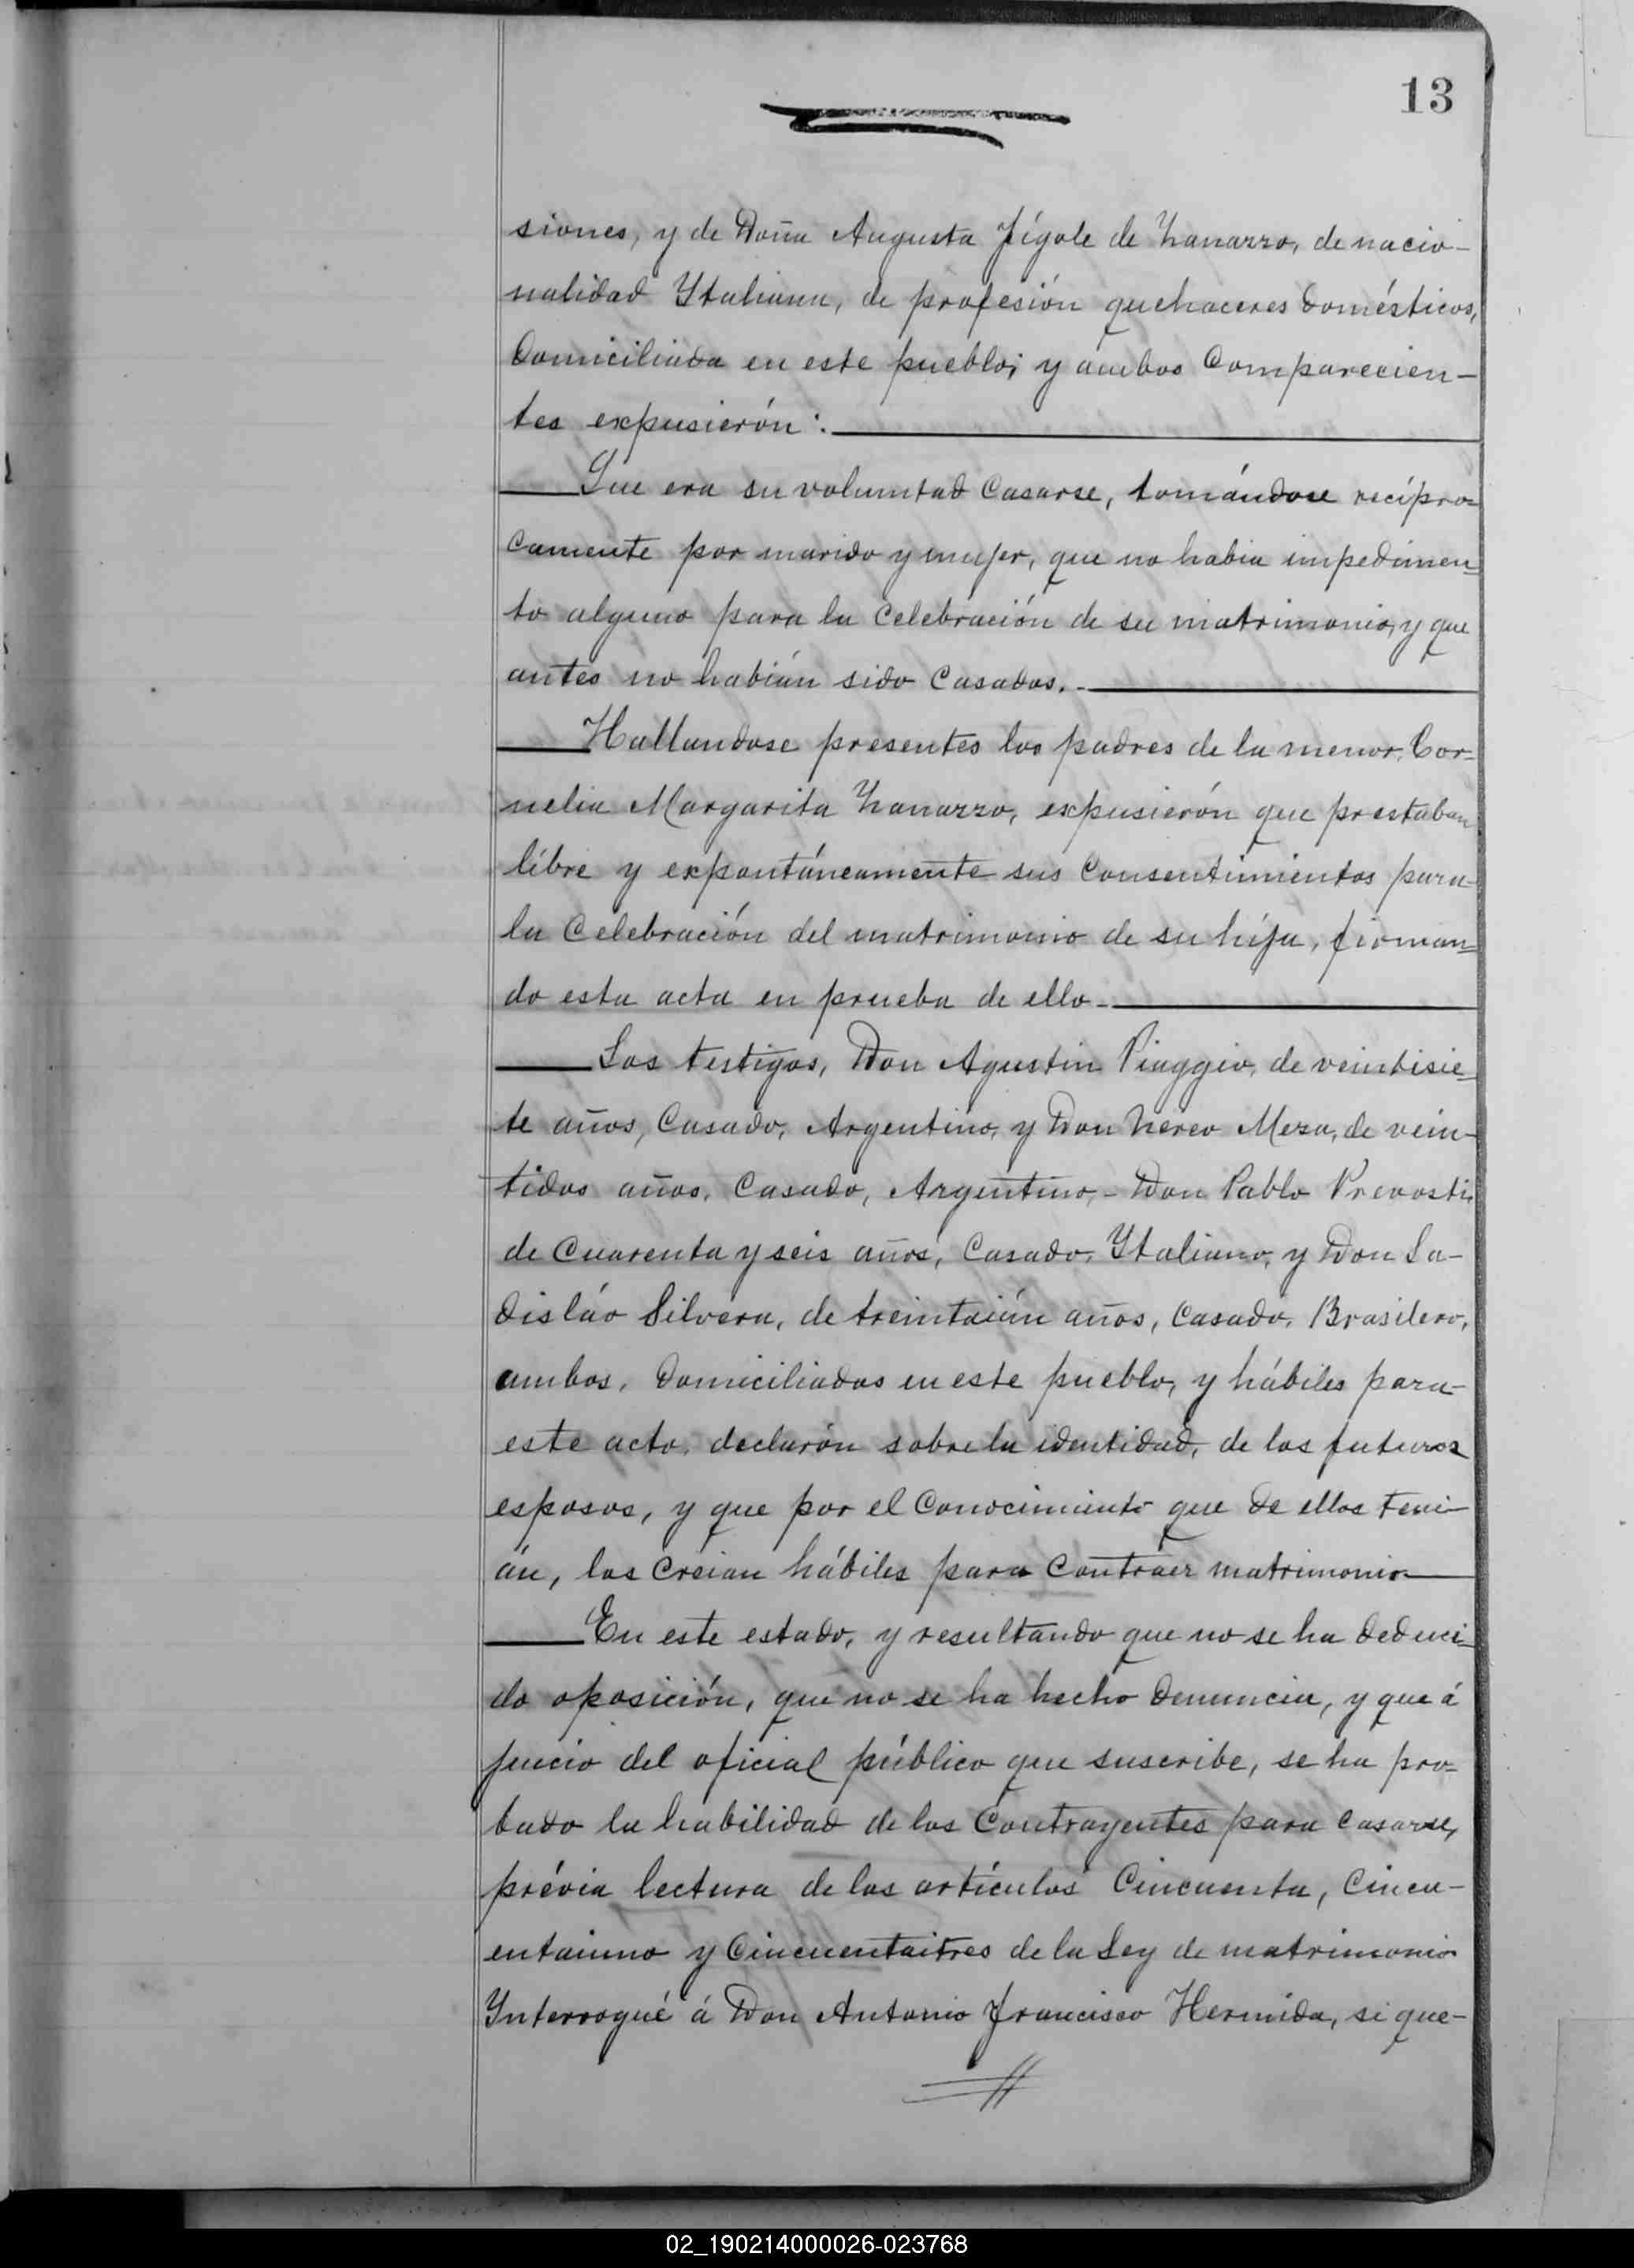 13
siones, y de Doña Augusta Fígole de Zanazzo, de nacio-
nalidad Ytaliana, de profesión quehaceres domésticos,
domiciliada en este pueblo; y ámbos Comparecien-
tes expusierón:
Que era su voluntad Casarse, tomándose recípro=
camente por marido y mujer, que no habia impedimen=
to alguno para la Celebración de su matrimonio, y que
antes no habián sido Casados.-
Hallandose presentes los padres de la menor Cor=
nelia Margarita Zanazzo, expusierón que prestaban
líbre y expontáneamente sus Consentimientos para-
la Celebración del matrimonio de su hija, firman=
do esta acta en prueba de ello-
Los testigos, Don Agustin Piaggio, de veintisie=
te años, Casado, Argentino, y Don Nereo Meza, de vein-
tidos años, Casado, Argentino,- Don Pablo Prevosti,
de Cuarenta y seis años, Casado, Ytaliano, y Don La-
disláo Silvera, de treintaiún años, Casado, Brasilero,
ambos, domiciliados en este pueblo, y hábiles para-
este acto, declarón sobre la identidad, de los futuros
esposos, y que por el Conocimiento que de ellos teni-
án, los Creian hábiles para Contraer matrimonio-
En este estado, y resultando que no se ha deduci=
do oposición, que no se ha hecho denuncia, y que á
juicio del oficial público que suscribe, se ha pro=
bado la habilidad de los Contrayentes para Casarse,
prévia lectura de los artículos Cincuenta, Cincu-
entaiuno y Cincuentaitres de la Ley de matrimonio
Ynterrogué á Don Antonio Francisco Hermida, si que-
02_190214000026-023768